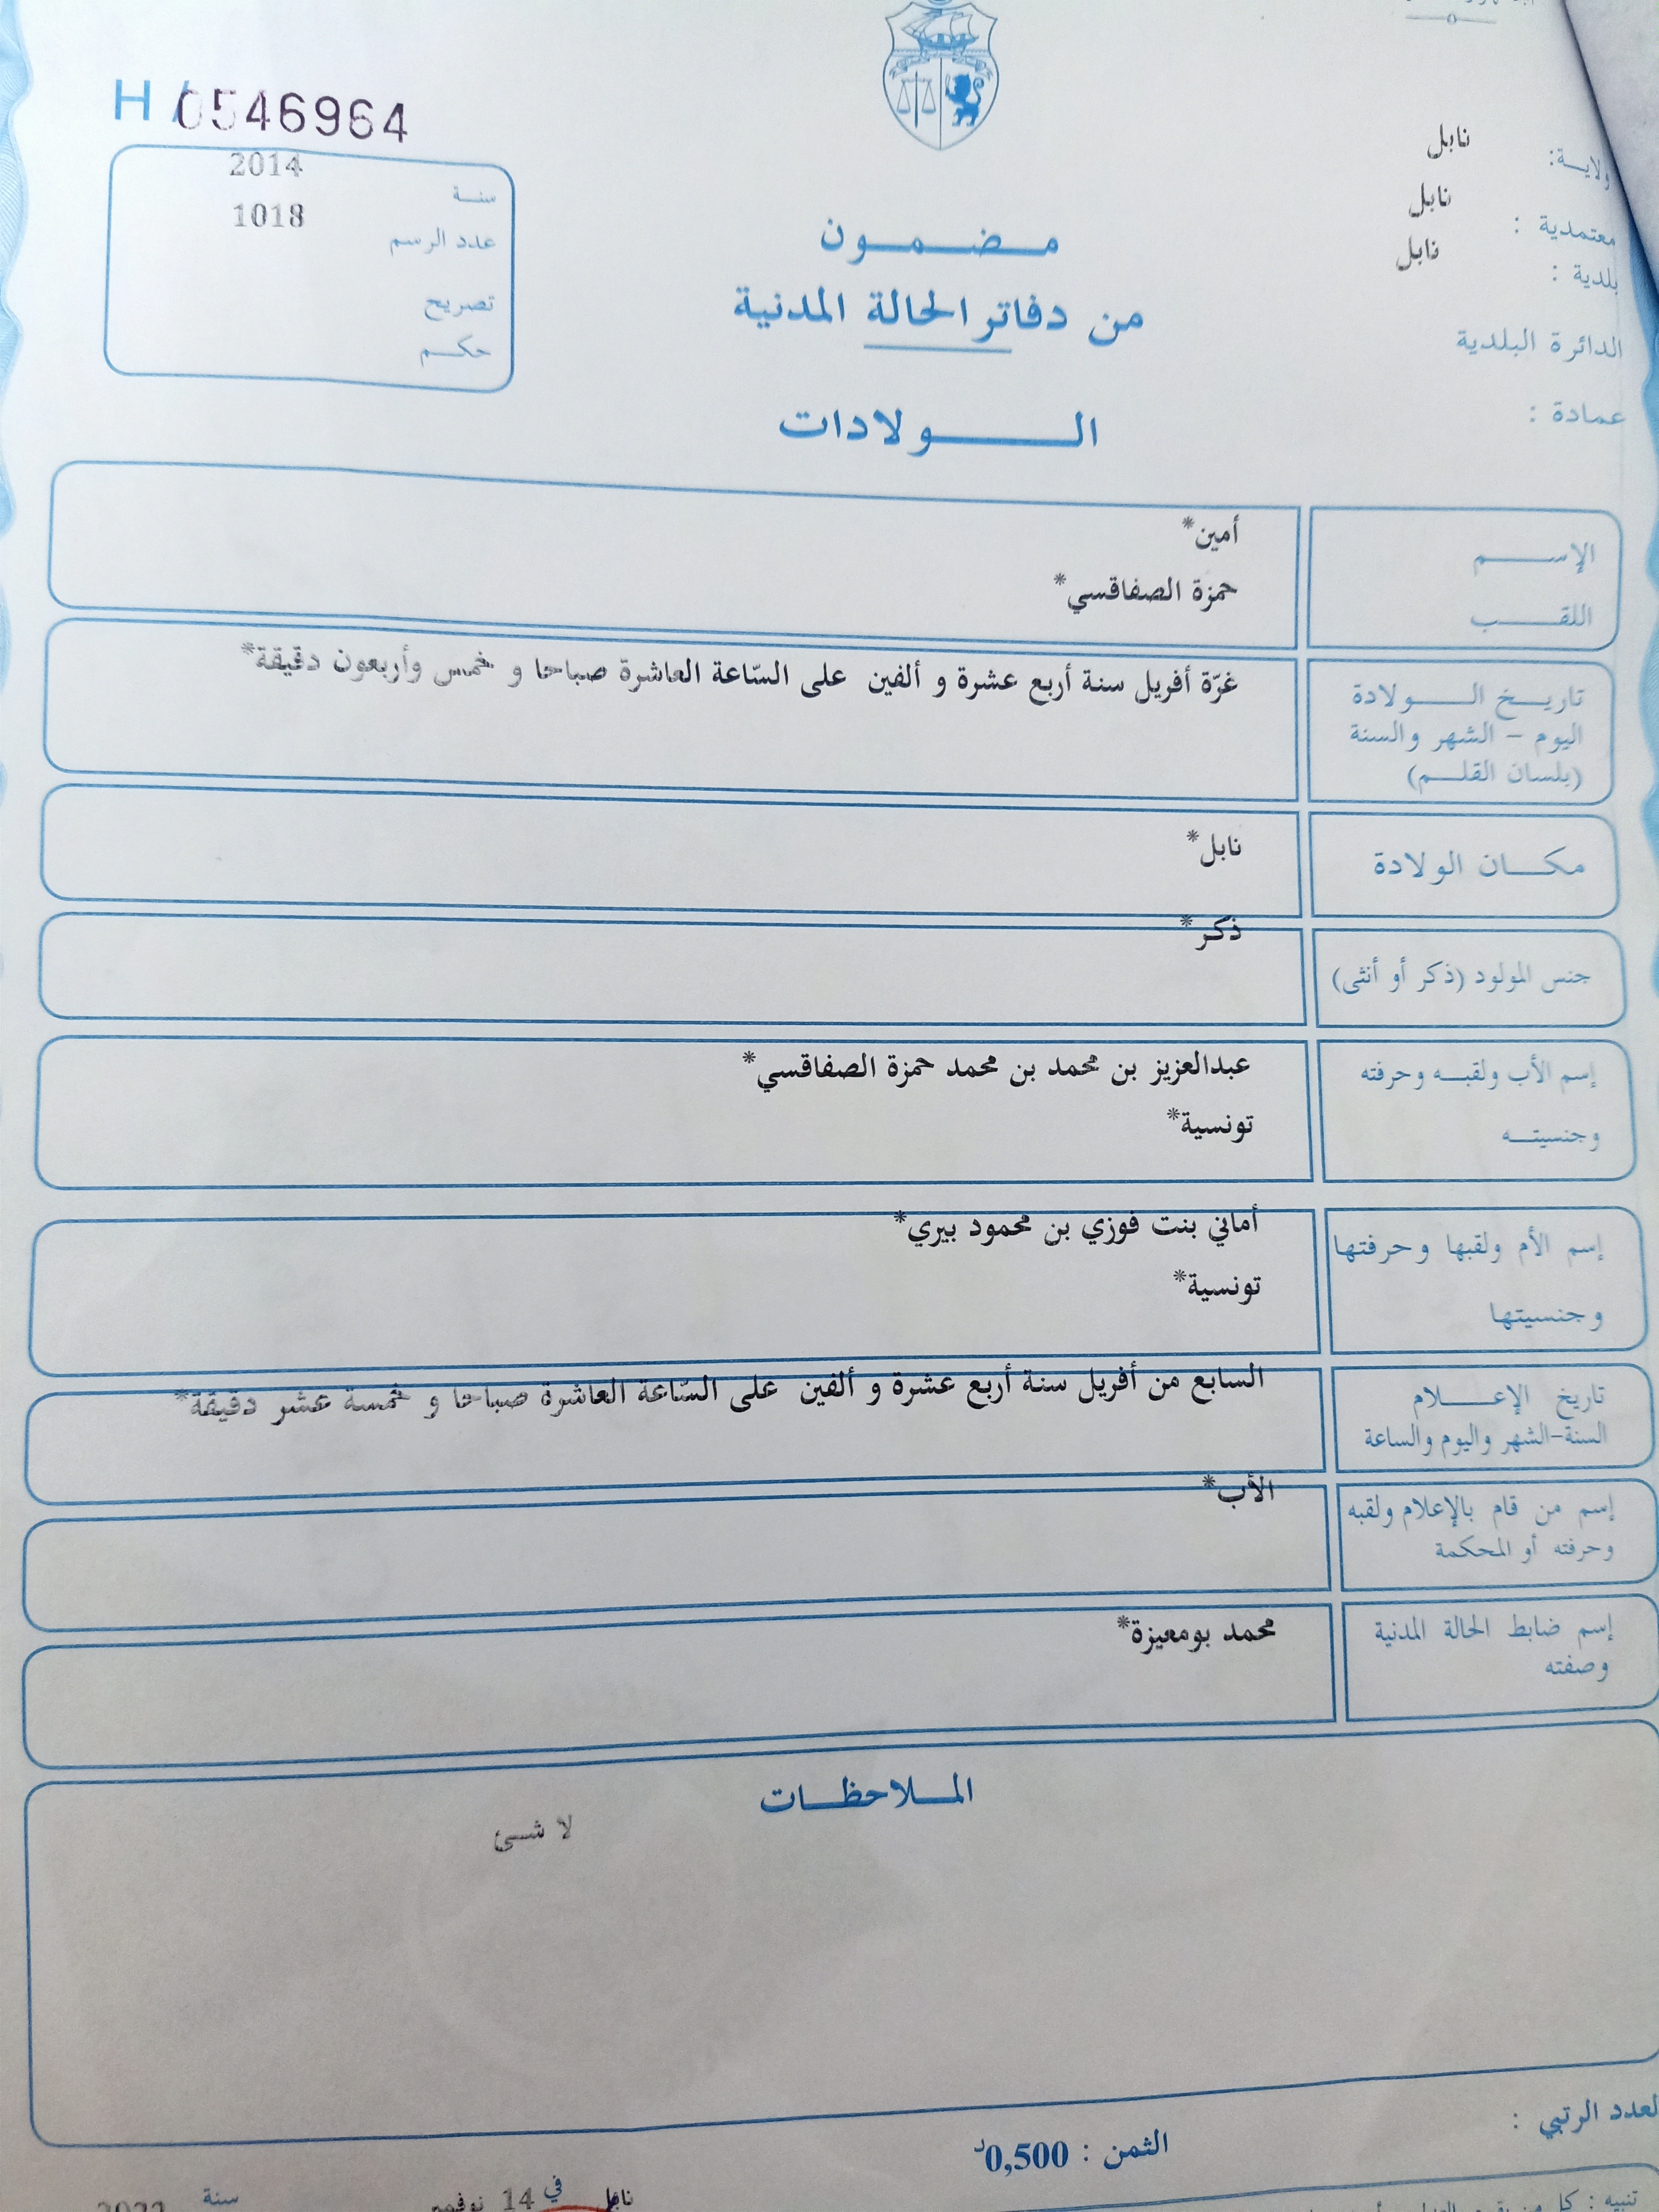 H/0546964
2014
سنة
1018
عدد الرسم
تصريح
حكم
ولاية: نابل
معتمدية : نابل
بلدية : نابل
الدائرة البلدية
عمادة :
مضمون
من دفاتر الحالة المدنية
الولادات
الإسم أمين*
اللقب حمزة الصفاقسي*
تاريخ الولادة غرّة أفريل سنة أربع عشرة و ألفين على السّاعة العاشرة صباحا و خمس وأربعون دقيقة*
اليوم - الشهر والسنة
(بلسان القلم)
مكان الولادة نابل*
جنس المولود (ذكر أو أنثى) ذكر*
إسم الأب ولقبه وحرفته عبدالعزيز بن محمد بن محمد حمزة الصفاقسي*
وجنسيته تونسية*
إسم الأم ولقبها وحرفتها أماني بنت فوزي بن محمود بيري*
وجنسيتها تونسية*
تاريخ الإعلام السابع من أفريل سنة أربع عشرة و ألفين على السّاعة العاشرة صباحا و خمسة عشر دقيقة*
السنة-الشهر واليوم والساعة
إسم من قام بالإعلام ولقبه الأب*
وحرفته أو المحكمة
إسم ضابط الحالة المدنية محمد بومعيزة*
وصفته
الملاحظات
لا شئ
لعدد الرتبي :
الثمن : 0,500د
نابل في 14 نوفمبر سنة
تنبيه : كل من